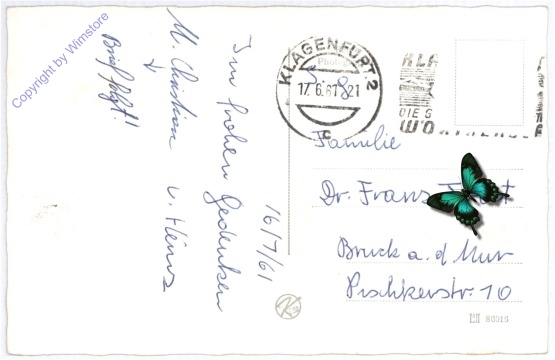 Copyright by Wimstore
Brief folgt!!
In frohen Gedenken
M. Christian u. Heinz
16/7/61
KLAGENFURT 2
17. 6. 61 21
c
KLA
DIE S
WO
Familie
Dr. Franz
Bruck a. d Mur
Pischkerstr. 10
86016